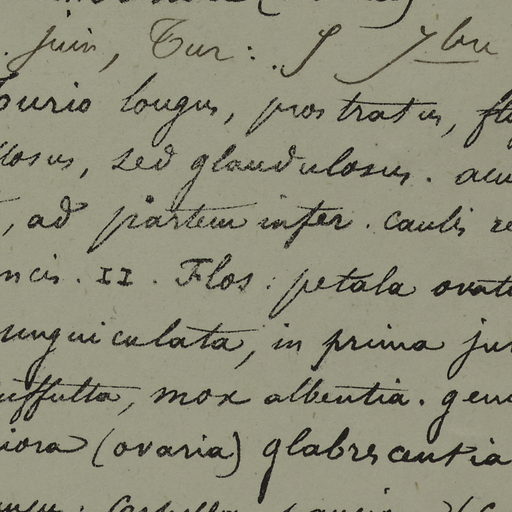 juin, Tur: S 7bre
Turio longus, prostratus, flo
losus, sed glandulosus. acu
, ad partem infer. caulis re
ncis. II. Flos: petala ovata
unguiculata, in prima ju
uffulta, mox albentia. gem
iora (ovaria) glabrescentia